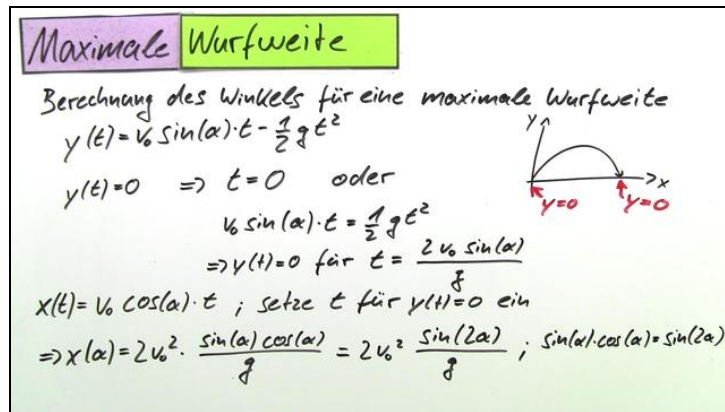 Maximale Wurfweite
Berechnung des Winkels für eine maximale Wurfweite
y(t) = v₀ sin(α)·t - ½ g t²
y
x
y=0 y=0
y(t)=0 ⇒ t=0 oder
v₀ sin(α)·t = ½ g t²
⇒ y(t)=0 für t = 2 v₀ sin(α) / g
x(t) = v₀ cos(α)·t ; setze t für y(t)=0 ein
⇒ x(α) = 2v₀² · sin(α) cos(α) / g = 2v₀² sin(2α) / g ; sin(α)·cos(α) = sin(2α)